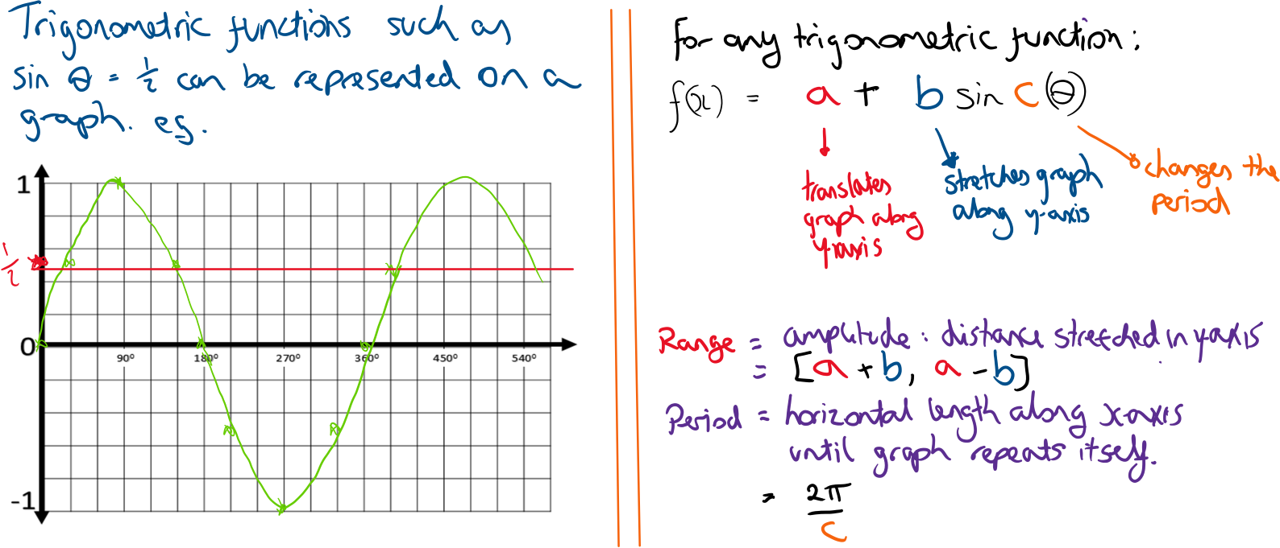 Trigonometric functions such as
sin θ = 1/2 can be represented on a
graph. eg.
1
1/2
0
90° 180° 270° 360° 450° 540°
-1
For any trigonometric function:
f(x) = a + b sin c(θ)
translates
graph along
y-axis
stretches graph
along y-axis
changes the
period
Range = amplitude: distance stretched in y-axis
= [a + b, a - b]
Period = horizontal length along x-axis
until graph repeats itself.
= 2π/c